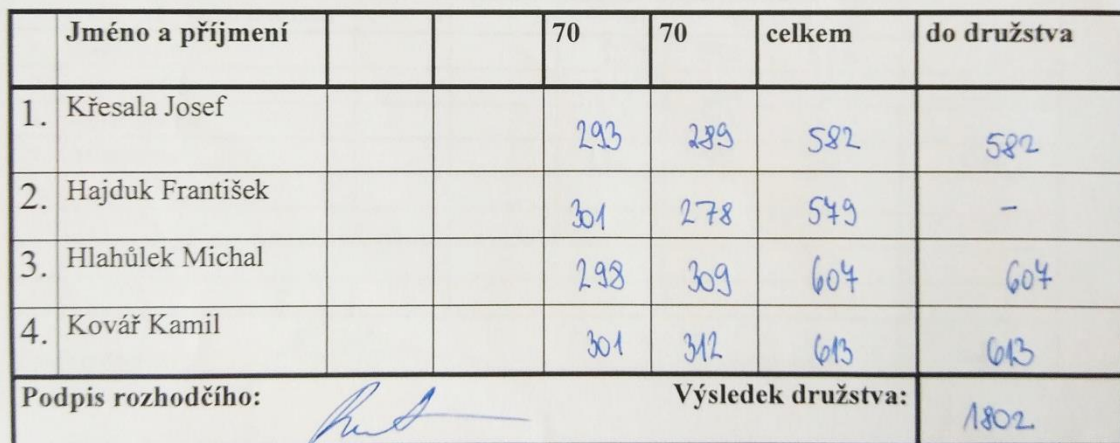 Jméno a příjmení 70 70 celkem do družstva
1. Křesala Josef 293 289 582 582
2. Hajduk František 301 278 579 -
3. Hlahůlek Michal 298 309 607 607
4. Kovář Kamil 301 312 613 613
Podpis rozhodčího: Výsledek družstva: 1802